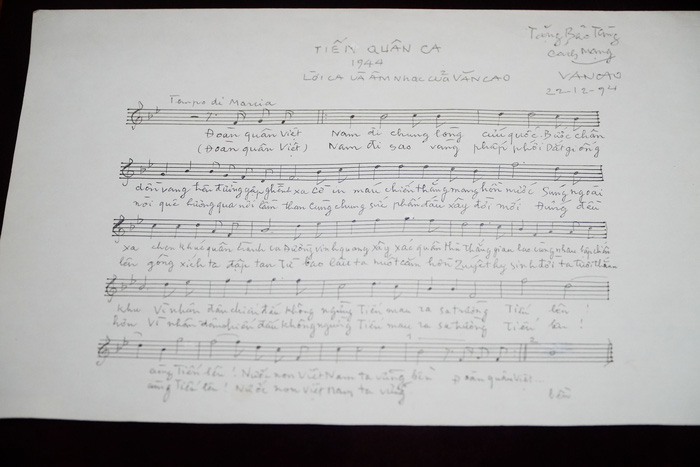 TIẾN QUÂN CA
1944
LỜI CA VÀ ÂM NHẠC CỦA VĂN CAO
Tặng Bảo Tàng
Cách Mạng
VĂN CAO
22-12-94
Tempo di Marcia
Đoàn quân Việt Nam đi chung lòng cứu quốc. Bước chân
(Đoàn quân Việt) Nam đi sao vàng phấp phới Dắt giống
dồn vang trên đường gập ghềnh xa Cờ in máu chiến thắng mang hồn nước Súng ngoài
nòi quê hương qua nơi lầm than Cùng chung sức phấn đấu xây đời mới Đứng đều
xa chen khúc quân hành ca Đường vinh quang xây xác quân thù Thắng gian lao cùng nhau lập chiến
lên gông xích ta đập tan Từ bao lâu ta nuốt căm hờn Quyết hy sinh đời ta tươi thắm
khu Vì nhân dân chiến đấu không ngừng Tiến mau ra sa trường Tiến lên!
hơn Vì nhân dân chiến đấu không ngừng Tiến mau ra sa trường Tiến lên!
cùng Tiến lên! Nước non Việt Nam ta vững bền Đoàn quân Việt...
cùng Tiến lên! Nước non Việt Nam ta vững bền